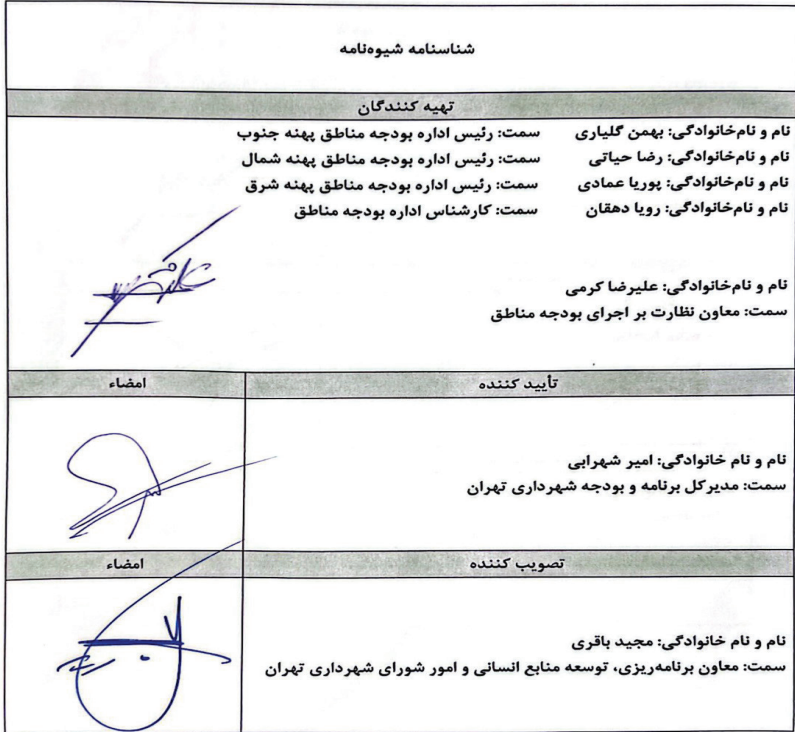 شناسنامه شیوه‌نامه
تهیه کنندگان
نام و نام‌خانوادگی: بهمن گلیاری سمت: رئیس اداره بودجه مناطق پهنه جنوب
نام و نام‌خانوادگی: رضا حیاتی سمت: رئیس اداره بودجه مناطق پهنه شمال
نام و نام‌خانوادگی: پوریا عمادی سمت: رئیس اداره بودجه مناطق پهنه شرق
نام و نام‌خانوادگی: رویا دهقان سمت: کارشناس اداره بودجه مناطق
نام و نام‌خانوادگی: علیرضا کرمی
سمت: معاون نظارت بر اجرای بودجه مناطق
تأیید کننده امضاء
نام و نام خانوادگی: امیر شهرابی
سمت: مدیرکل برنامه و بودجه شهرداری تهران
تصویب کننده امضاء
نام و نام خانوادگی: مجید باقری
سمت: معاون برنامه‌ریزی، توسعه منابع انسانی و امور شورای شهرداری تهران